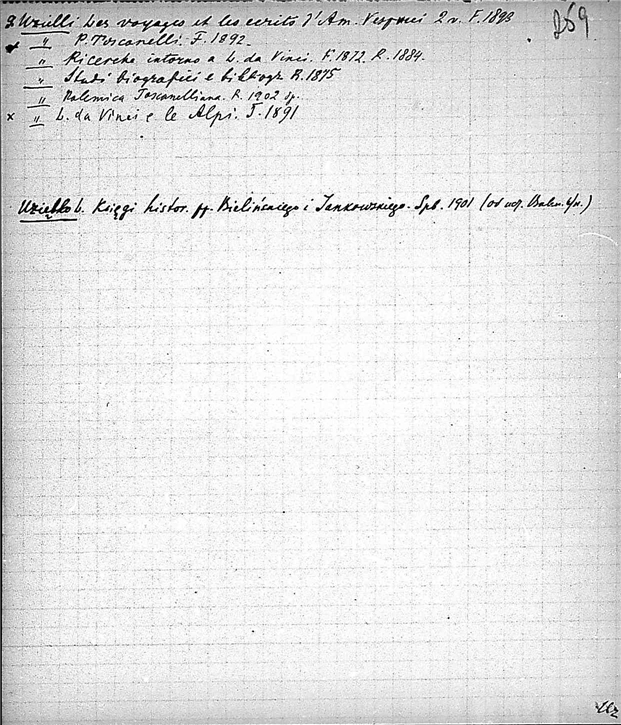 Uzielli Les voyages et les ecrits d'Am. Vespucci 2 v. F. 1893
269
x " P. Toscanelli. F. 1892.
" Ricerche intorno a L. da Vinci. F. 1872. R. 1884.
" Studi biografici e bibliogr. R. 1875
" Polemica Toscanelliana. R. 1902
x " L. da Vinci e le Alpi. T. 1891
Uziębło L. Księgi histor. pp. Bielińskiego i Jankowskiego. Spb. 1901 (od
Uz